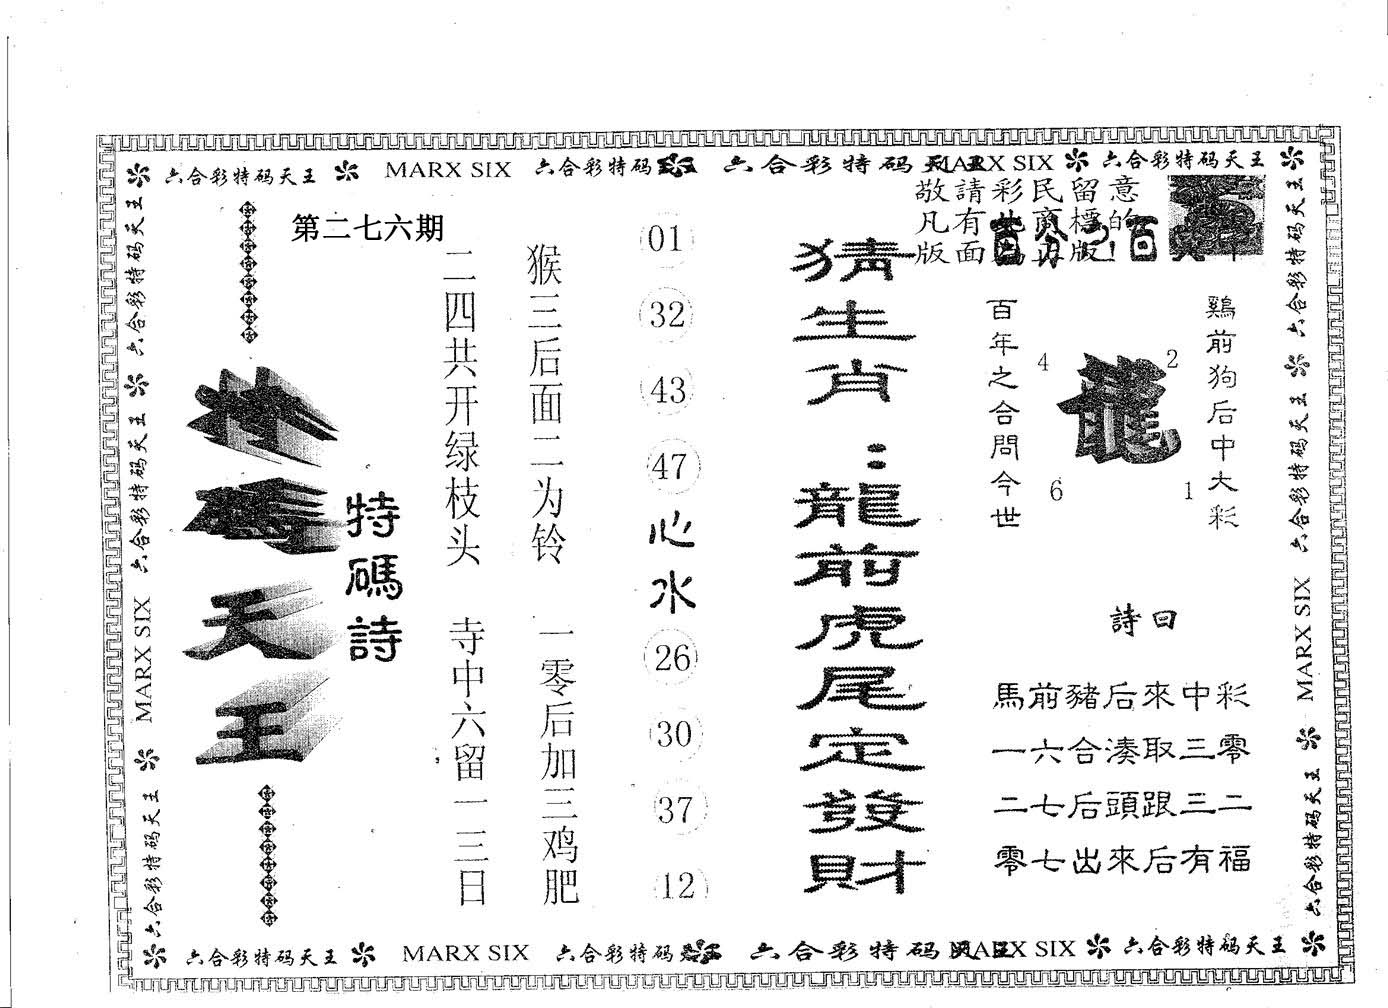 六合彩特码天王 MARX SIX 六合彩特码 六合彩特码天王 MARX SIX 六合彩特码天王
敬請彩民留意
凡有 商標的
版面 正版！
鷄前狗后中大彩
2
1
龍
4
6
百年之合問今世
詩曰
馬前豬后來中彩
一六合湊取三零
二七后頭跟三二
零七出來后有福
猜生肖：龍前虎尾定發財
01
32
43
47
心水
26
30
37
12
第二七六期
猴三后面二为铃 一零后加三鸡肥
二四共开绿枝头 寺中六留一三日
特碼詩
特碼天王
六合彩特码天王 六合彩特码天王 MARX SIX 六合彩特码天王
六合彩特码天王 六合彩特码天王 MARX SIX 六合彩特码天王
六合彩特码天王 MARX SIX 六合彩特码 六合彩特码天王 MARX SIX 六合彩特码天王